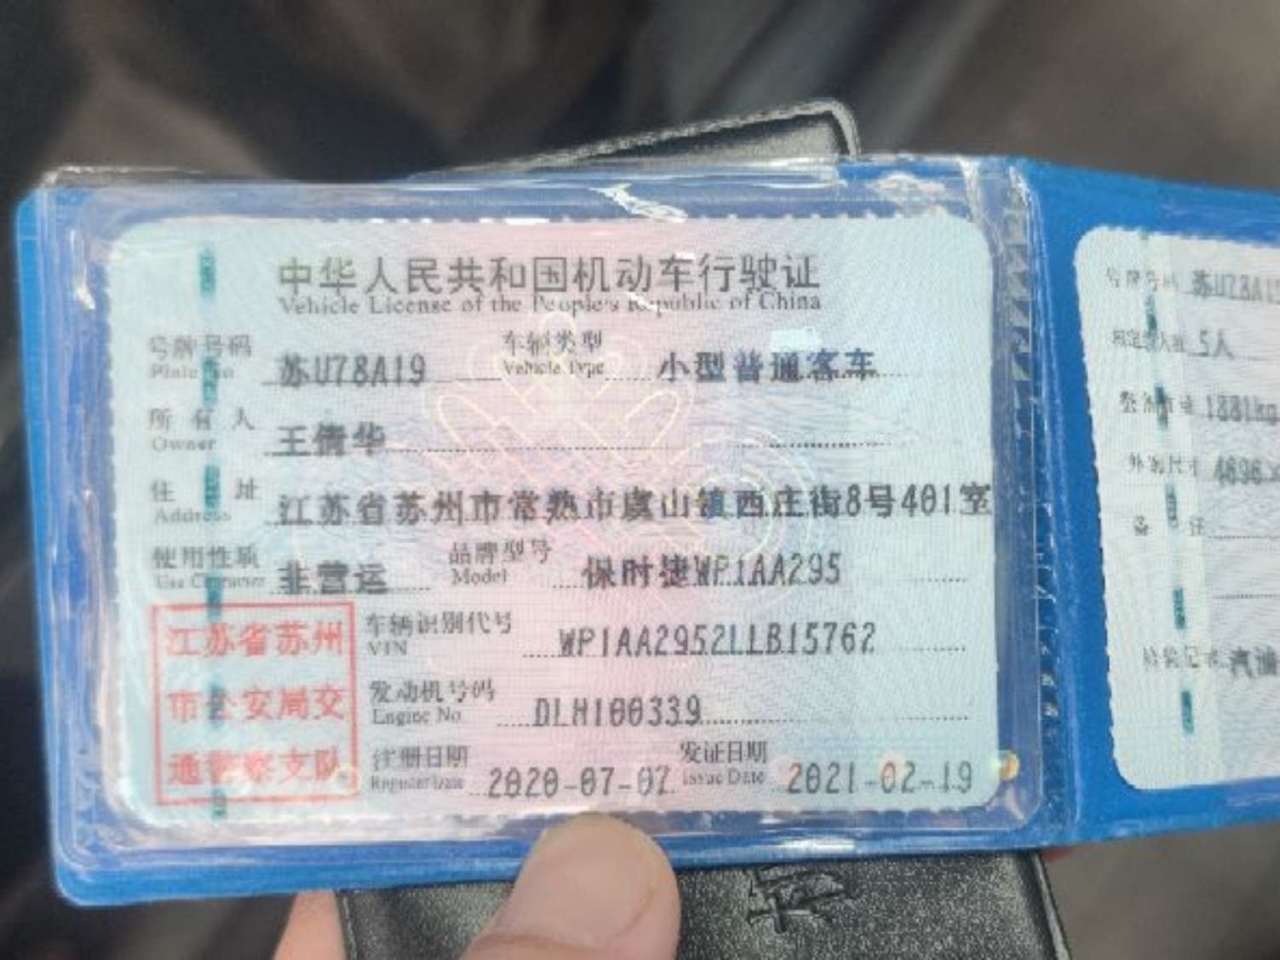 中华人民共和国机动车行驶证
Vehicle License of the People's Republic of China
号牌号码 苏U78A19 车辆类型 小型普通客车
Plate No. Vehicle Type
所有人 王倩华
Owner
住址 江苏省苏州市常熟市虞山镇西庄街8号401室
Address
使用性质 非营运 品牌型号 保时捷WP1AA295
Use Character Model
车辆识别代号 WP1AA2952LLB15762
VIN
发动机号码 DLH100339
Engine No.
注册日期 2020-07-07 发证日期 2021-02-19
Register Date Issue Date
江苏省苏州
市公安局交
通警察支队
号牌号码 苏U78A1
核定载人数 5人
整备质量 1881kg
外廓尺寸 4696
备注
检验记录 汽油